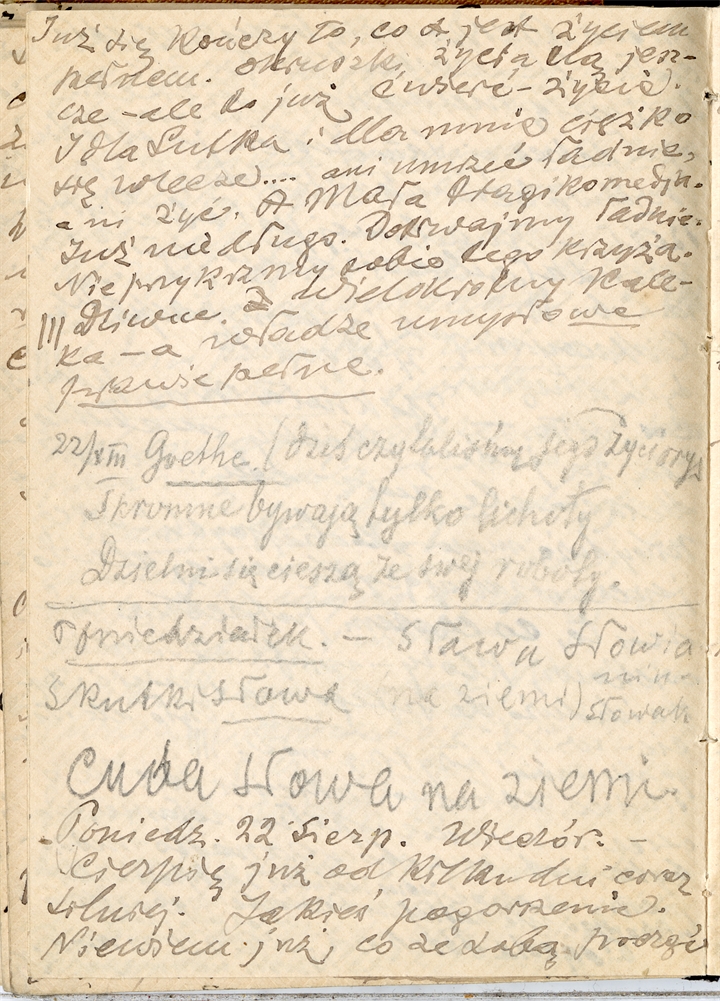 Już się kończy to, co jest życiem
pełnem. Okruszki życia są jesz-
cze – ale to już ćwierć-życie.
I dla Lutka i dla mnie ciężko
się wlecze.... ani umrzeć ładnie,
ani żyć. A Mała tragikomedja.
Już niedługo. Dotrwajmy ładnie.
Nie przykrzmy sobie tego krzyża.
||| Dziwne. Wielokrotny kale-
ka – a władze umysłowe
prawie pełne.
22/VIII Goethe. (Dziś czytaliśmy jego życiorys
Skromne bywają tylko lichoty
Dzielni się cieszą ze swej roboty.
Poniedziałek. – Sława Słowia
nin
Skutki słowa (na ziemi) Słowak
Cuda słowa na ziemi.
Poniedz. 22 Sierp. Wieczór. –
Cierpię już od kilku dni coraz
silniej. Jakieś pogorszenie.
Niewiem już, co ze sobą począć